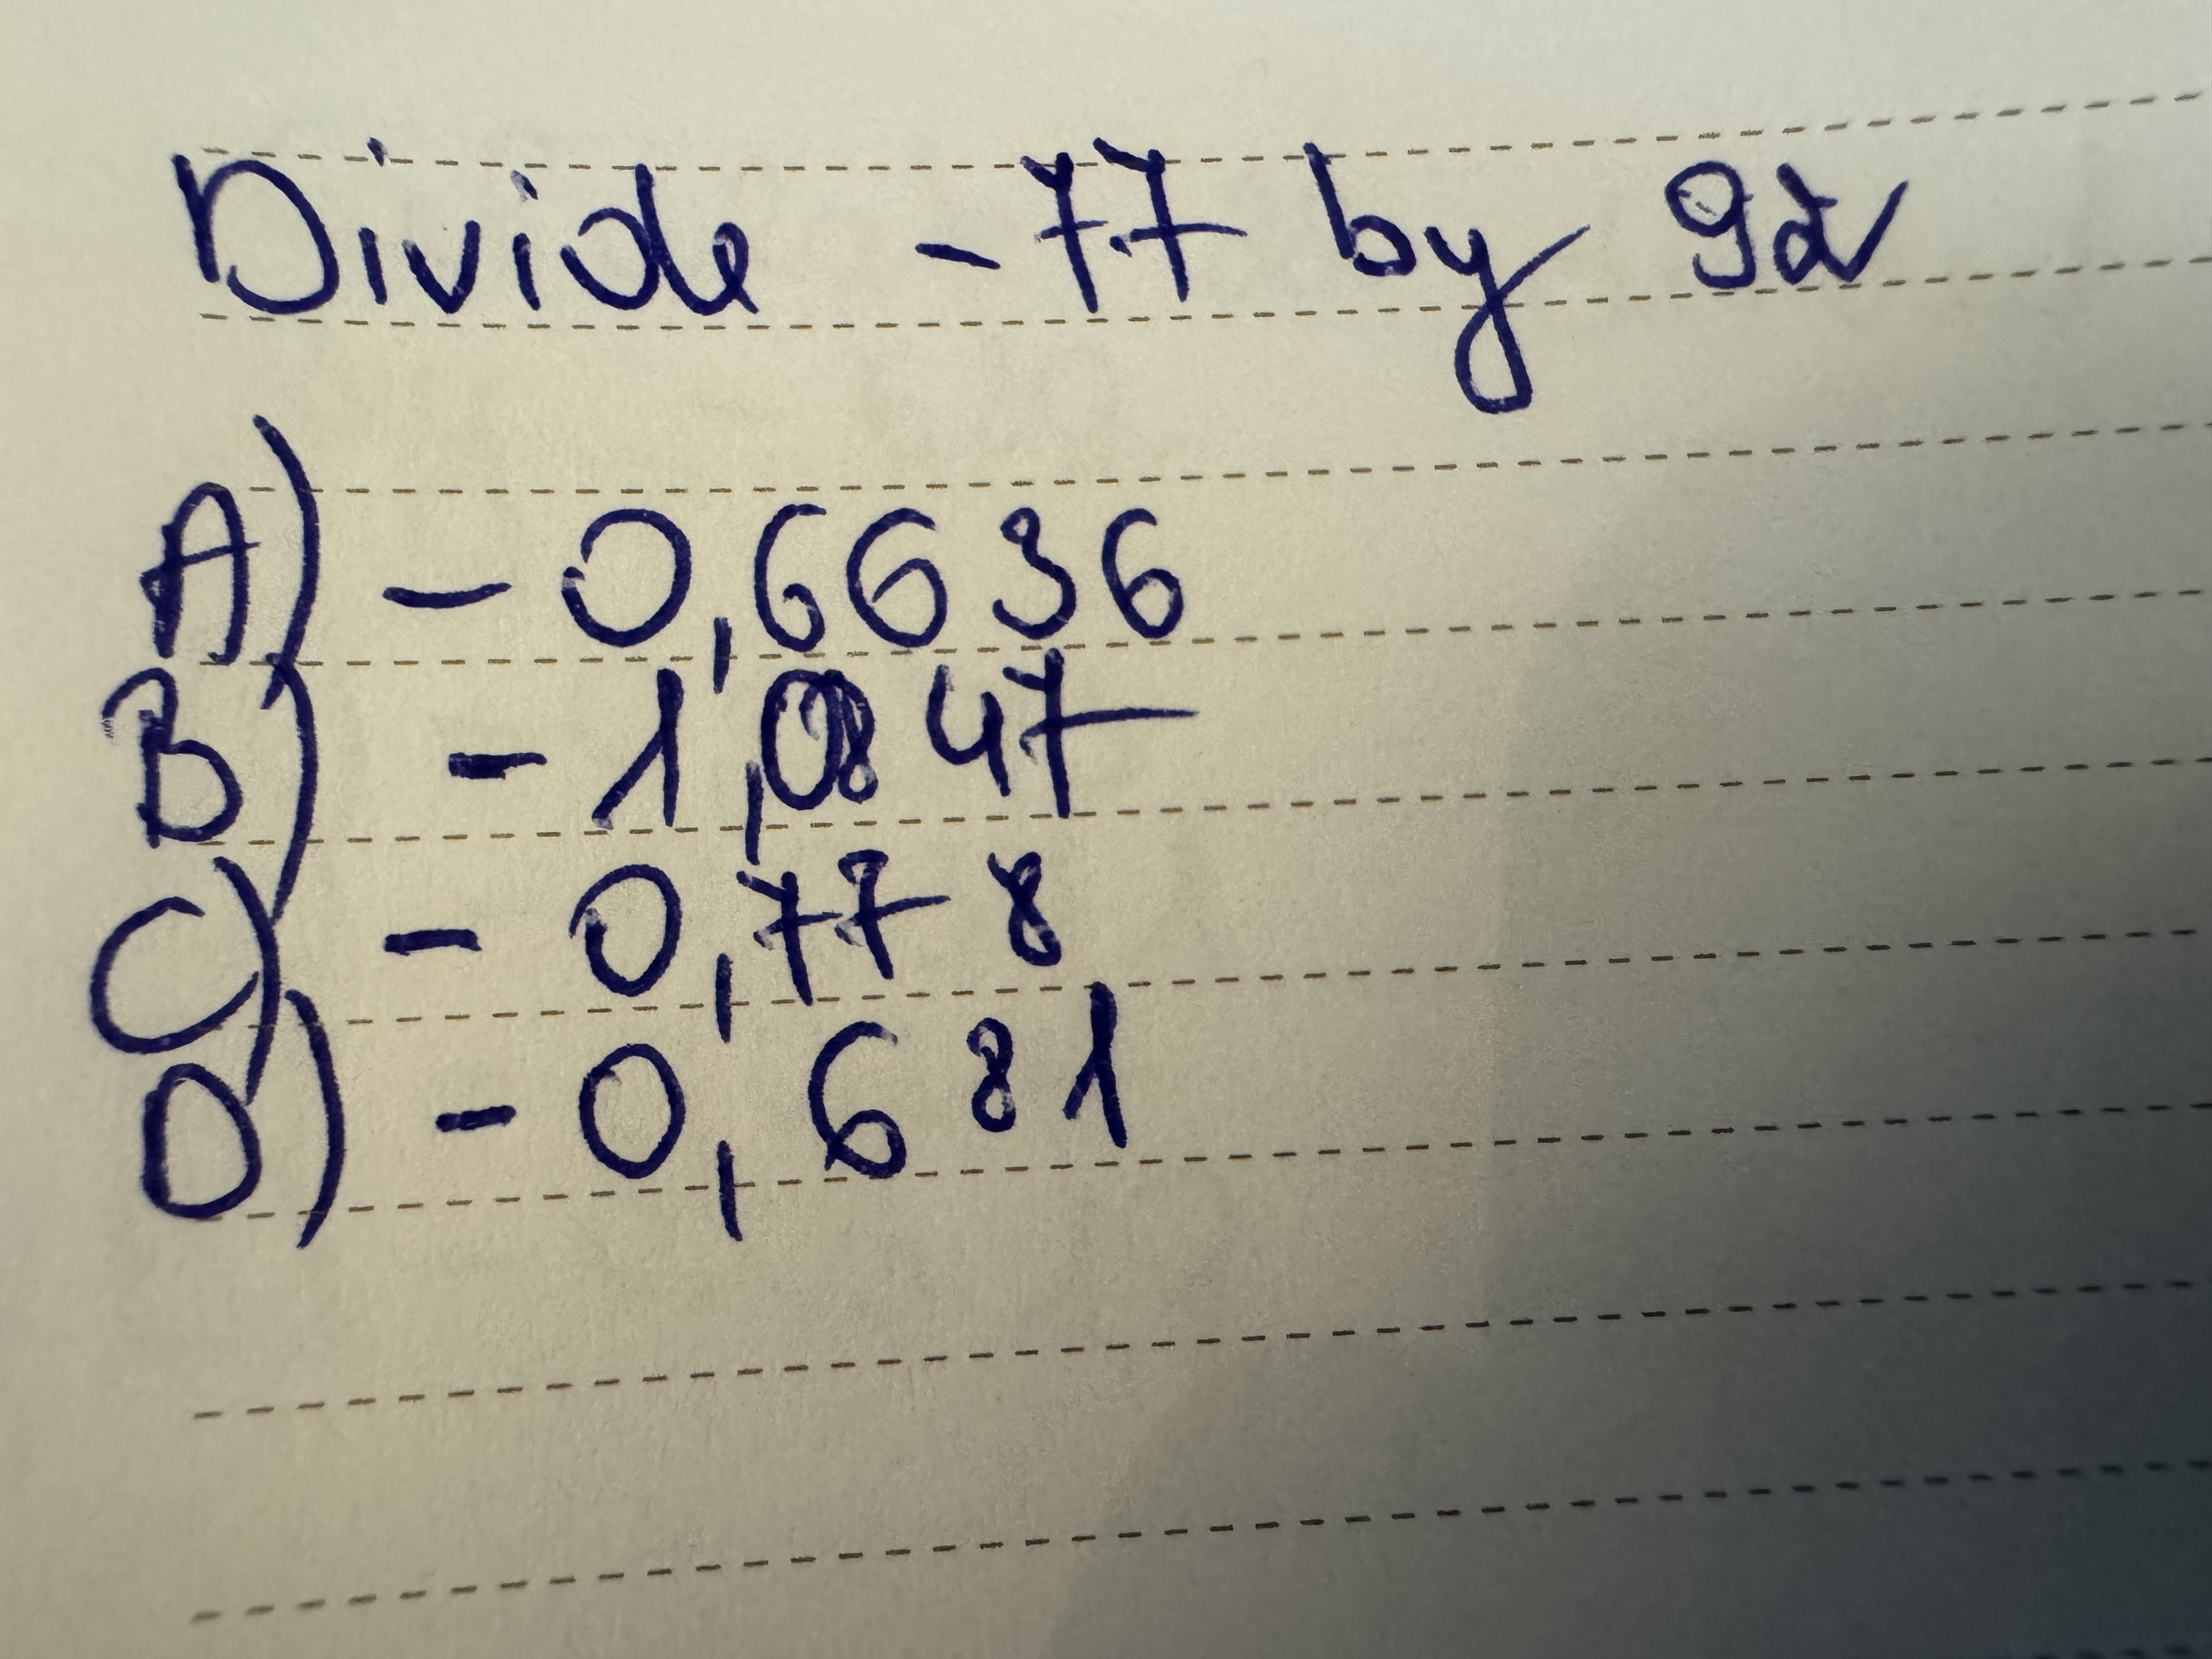 Divide -77 by 92
A) - 0,6636
B) - 1,0847
C) - 0,778
D) - 0,681